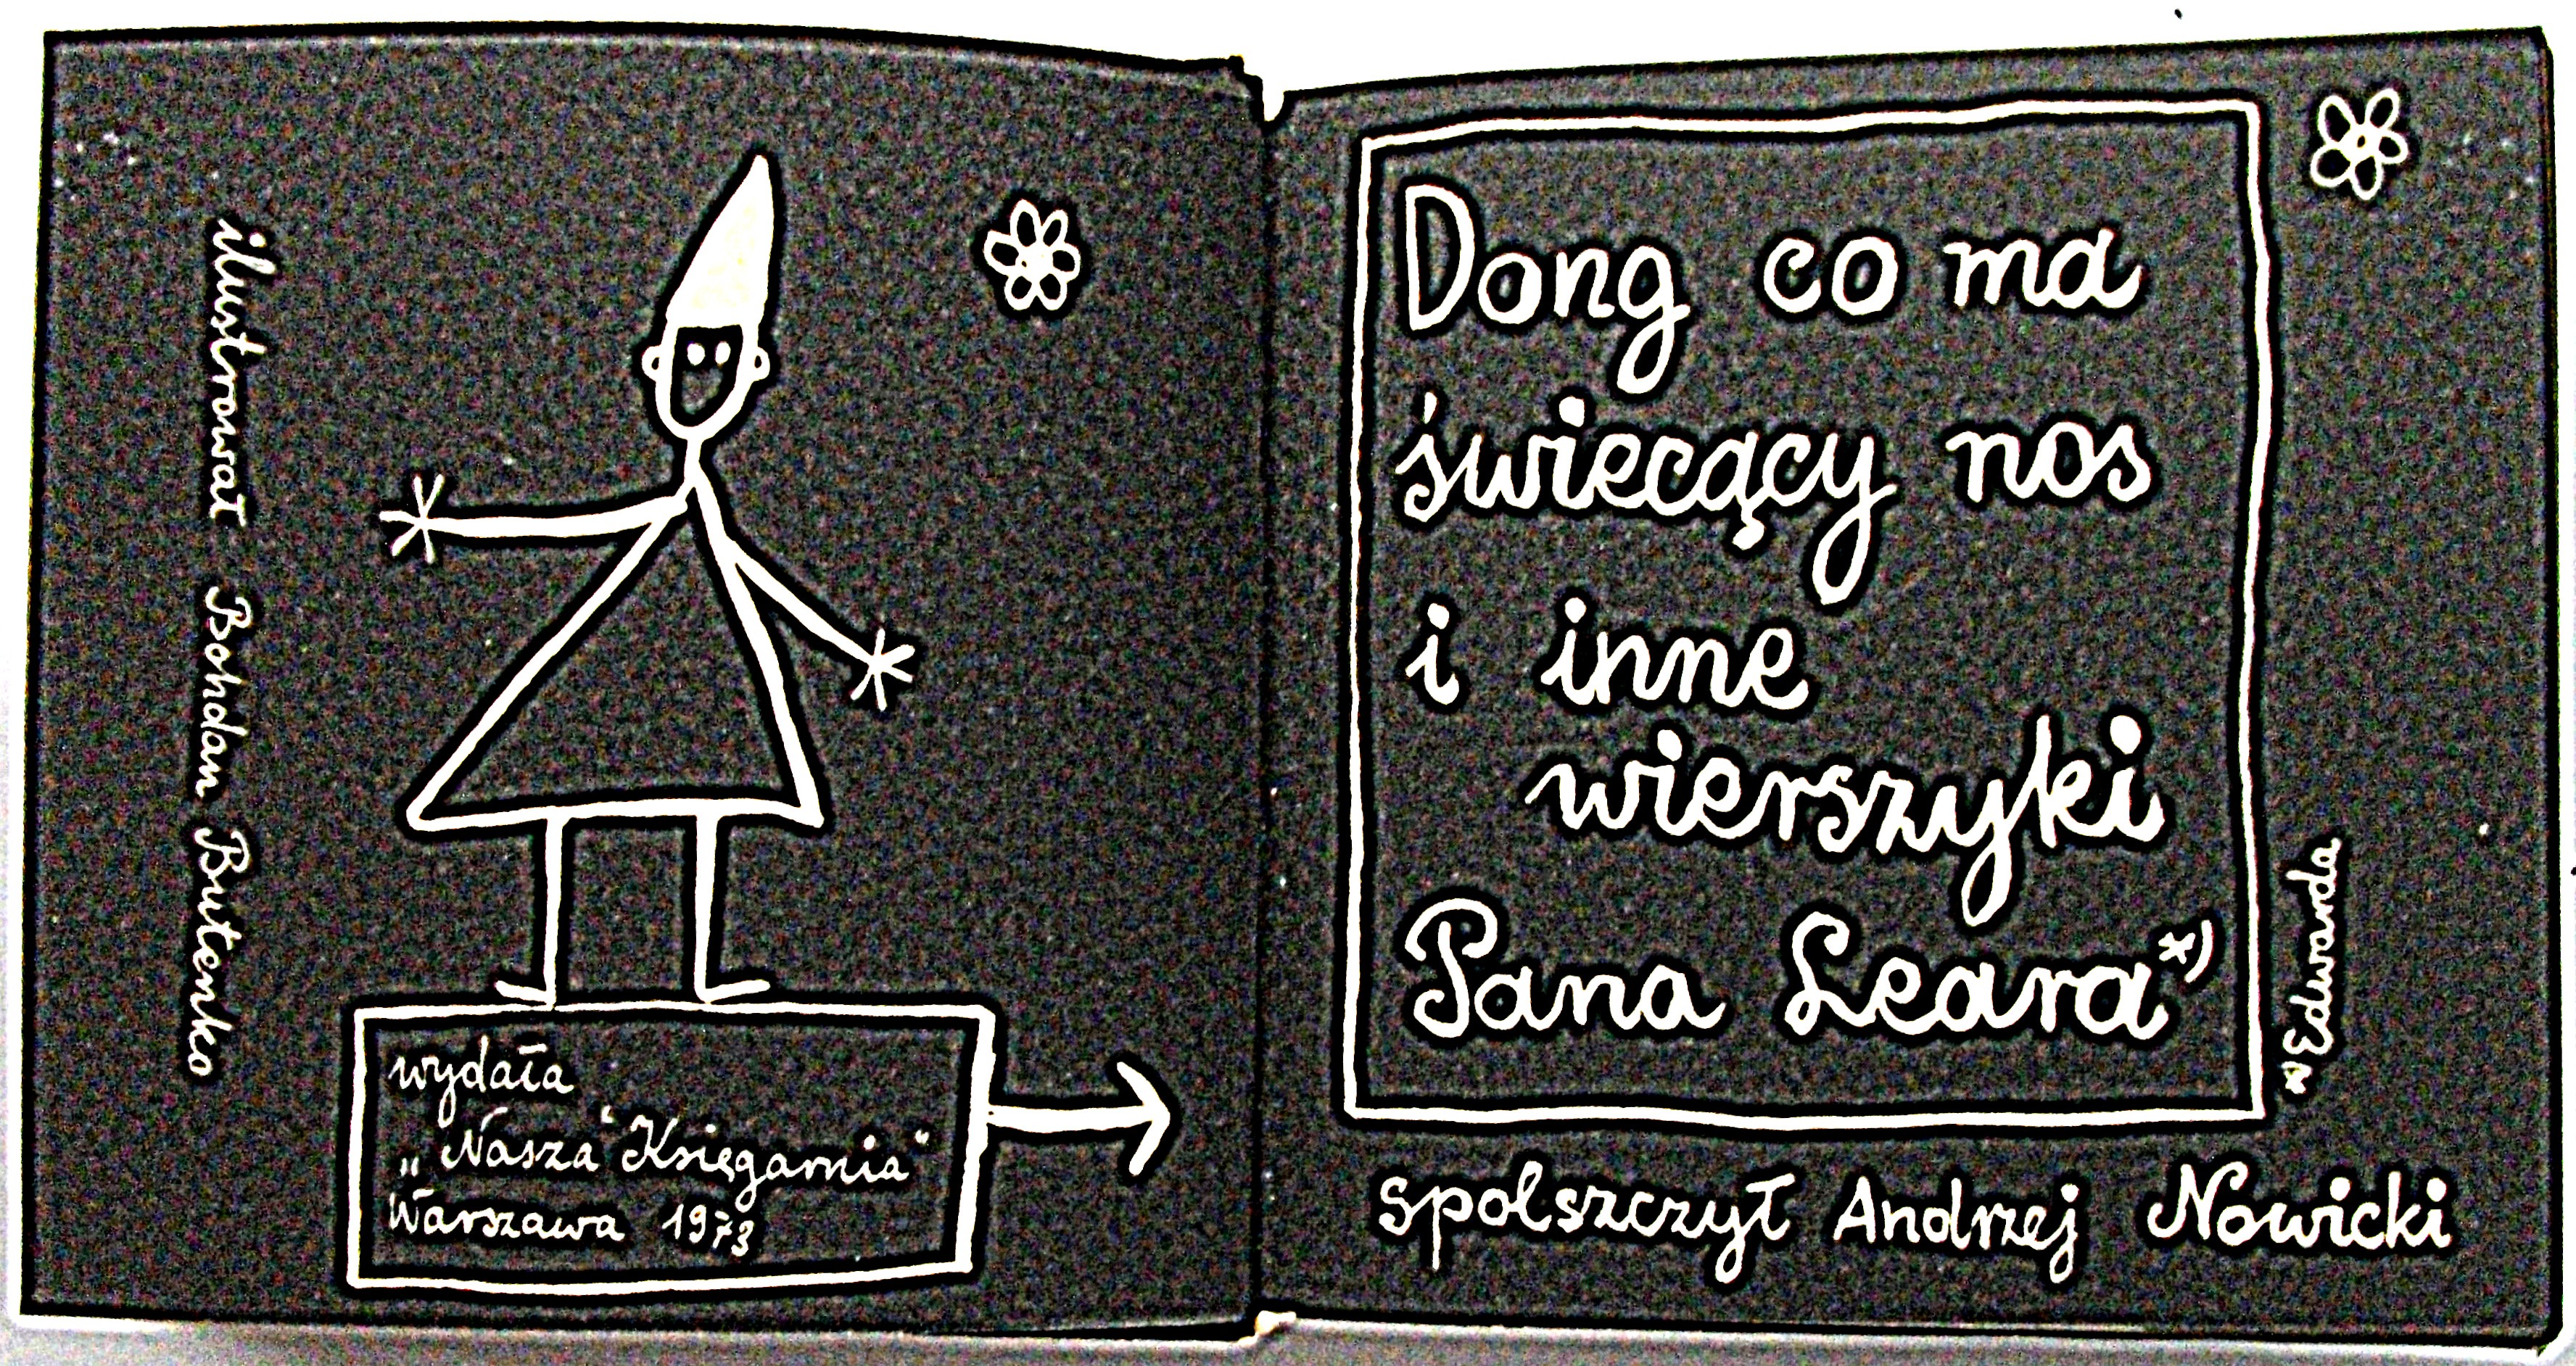 ilustrował Bohdan Butenko
wydała
„Nasza Księgarnia"
Warszawa 1973
Dong co ma
świecący nos
i inne
wierszyki
Pana Leara x)
x) Edwarda
spolszczył Andrzej Nowicki